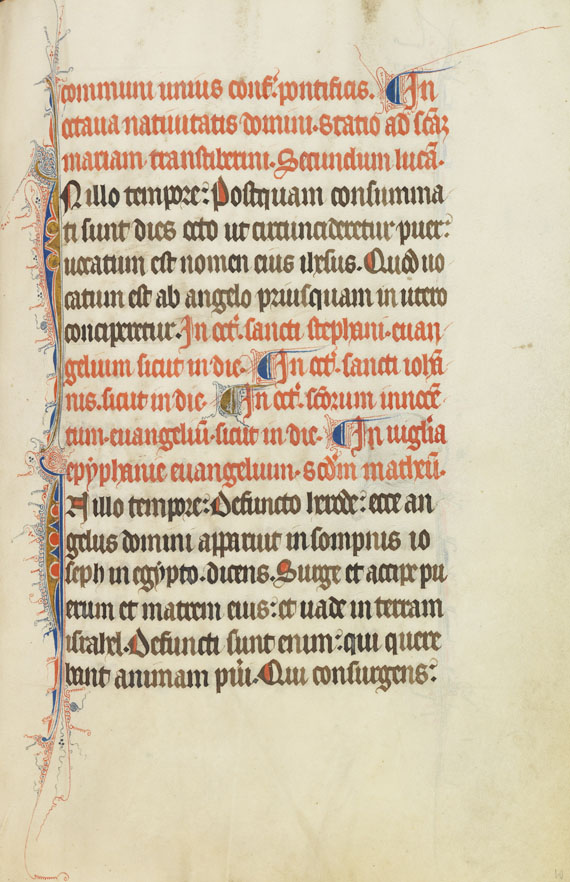 communi unius conf. pontificis. In
octaua natiuitatis domini. Statio ad scāz
mariam transtiberini. Secundum lucā.
N illo tempore: Postquam consumma
ti sunt dies octo ut circuncideretur puer:
uocatum est nomen eius ihesus. Quod uo
catum est ab angelo priusquam in utero
conciperetur. In oct. sancti stephani. euan
gelium sicut in die. In oct. sancti iohā
nis. sicut in die In oct. scōrum innocē
tum. euangeliū. sicut in die. In uiglia
epyphanie euangelium. scdm matheū.
N illo tempore: Defuncto herode: ecce an
gelus domini apparuit in sompnis io
seph in egypto. dicens. Surge et accipe pu
erum et matrem eius: et uade in terram
israhel. Defuncti sunt enim: qui quere
bant animam puī. Qui consurgens: